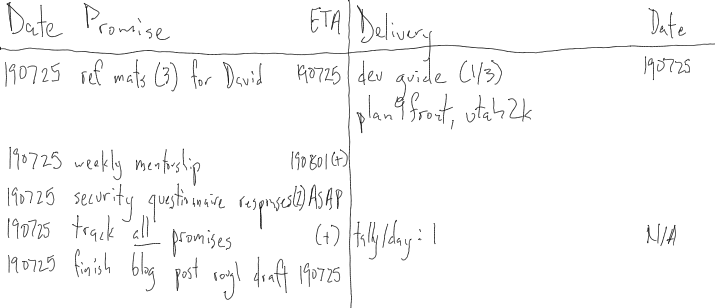 Date Promise ETA Delivery Date
190725 ref mats (3) for David 190725 dev guide (1/3) 190725
plan 9 front, utah2k
190725 weekly mentorship 190801(+)
190725 security questionnaire responses(2) ASAP
190725 track all promises (+) tally/day: 1 N/A
190725 finish blog post rough draft 190725